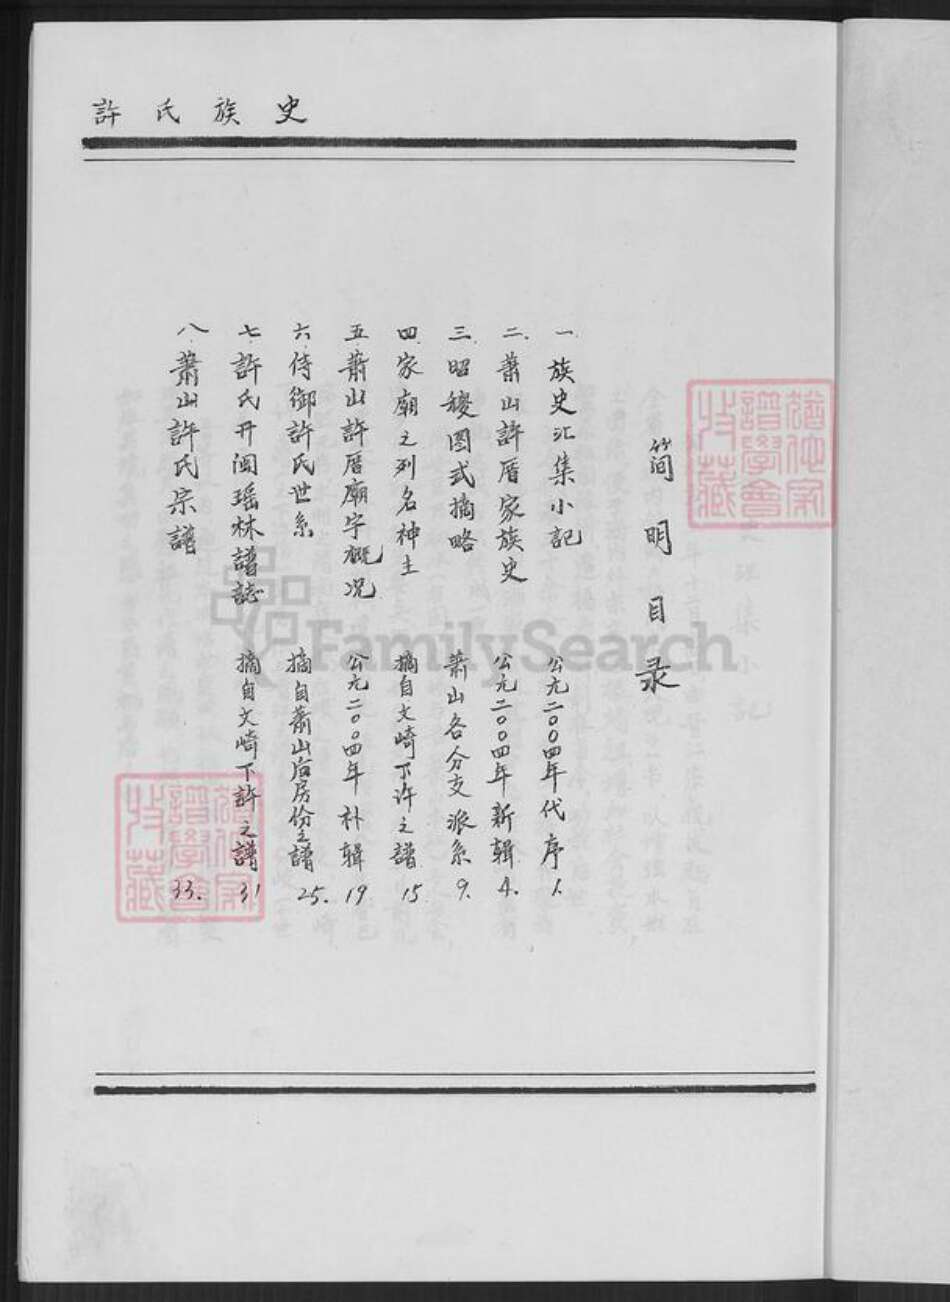 許氏族史
簡明目录
一.族史汇集小記 公元二00四年代序 1.
二.蕭山許厝家族史 公元二00四年新輯 4.
三.昭稷图式摘略 蕭山各分支派系 9.
四.家廟之列名神主 摘自文崎下许之譜 15
五.蕭山許厝廟宇概况 公元二00四年补輯 19
六.侍御許氏世系 摘自蕭山后房份之譜 25.
七.許氏开闽瑶林譜誌 摘自文崎下許之譜 31
八.蕭山許氏宗譜 33.
FamilySearch
猶他家
譜學會
收藏
猶他家
譜學會
收藏